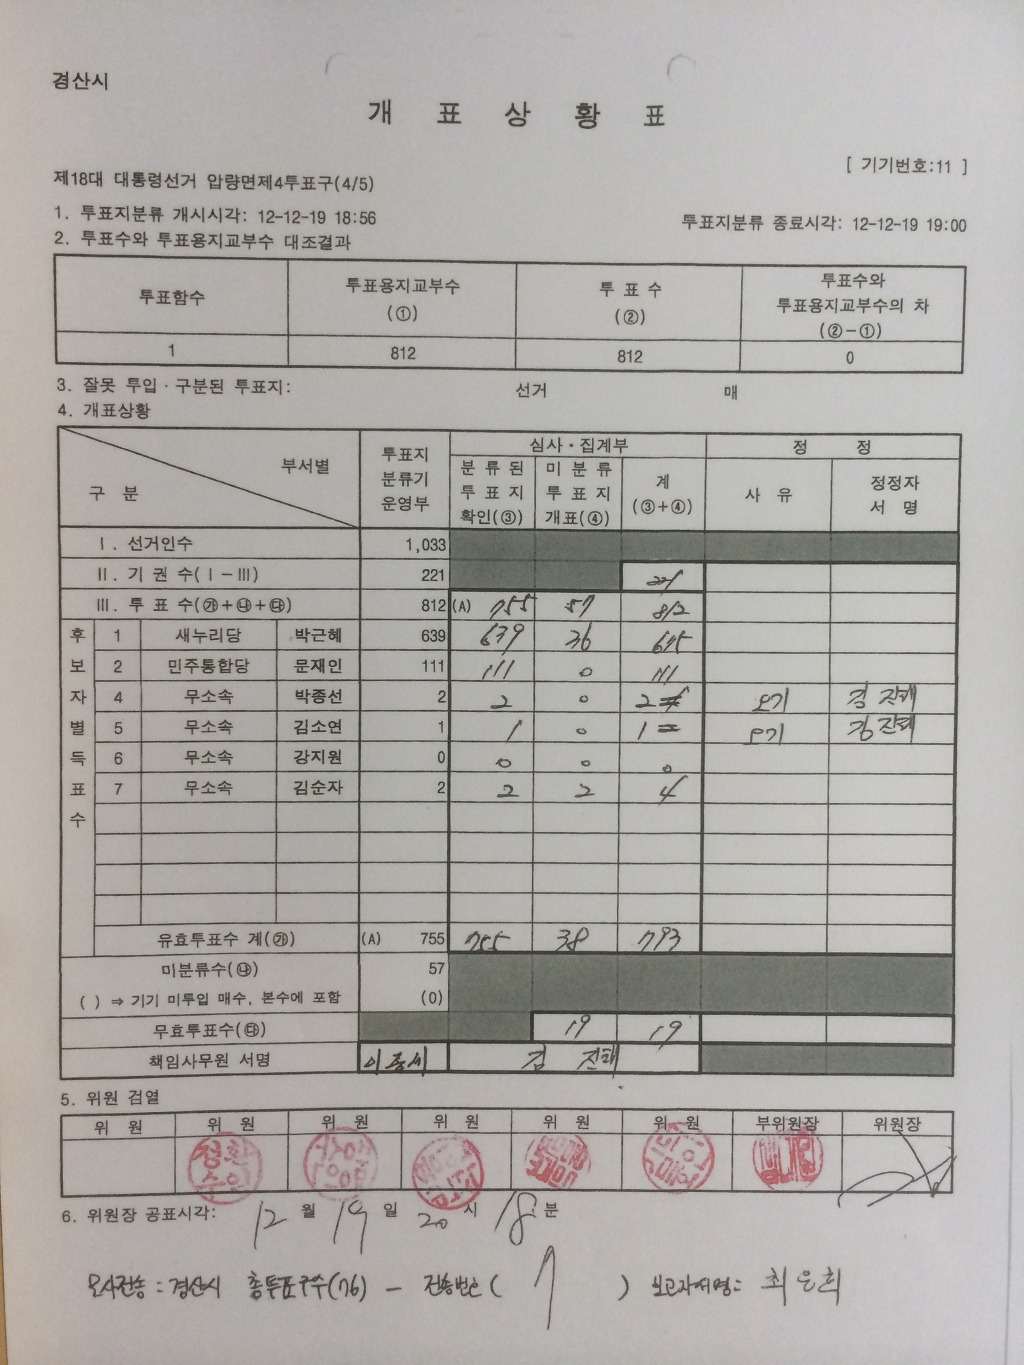 경산시
개 표 상 황 표
[ 기기번호:11 ]
제18대 대통령선거 압량면제4투표구(4/5)
1. 투표지분류 개시시각: 12-12-19 18:56 투표지분류 종료시각: 12-12-19 19:00
2. 투표수와 투표용지교부수 대조결과
투표함수 투표용지교부수 (①) 투 표 수 (②) 투표수와 투표용지교부수의 차 (②-①)
1 812 812 0
3. 잘못 투입·구분된 투표지: 선거 매
4. 개표상황
구 분 부서별 투표지 분류기 운영부 심사·집계부 정 정
분 류 된 투 표 지 확인(③) 미 분 류 투 표 지 개표(④) 계 (③+④) 사 유 정정자 서 명
Ⅰ. 선거인수 1,033
Ⅱ. 기 권 수(Ⅰ-Ⅲ) 221 221
Ⅲ. 투 표 수(㉮+㉯+㉰) 812 (A) 755 57 812
후보자별득표수
1 새누리당 박근혜 639 639 36 675
2 민주통합당 문재인 111 111 0 111
4 무소속 박종선 2 2 0 2 오기 김진태
5 무소속 김소연 1 1 0 1 오기 김진태
6 무소속 강지원 0 0 0 0
7 무소속 김순자 2 2 2 4
유효투표수 계(㉮) (A) 755 755 38 793
미분류수(㉯) 57
( ) ⇒ 기기 미투입 매수, 본수에 포함 (0)
무효투표수(㉰) 19 19
책임사무원 서명 김 진태
5. 위원 검열
위 원 위 원 위 원 위 원 위 원 위 원 부위원장 위원장
6. 위원장 공표시각: 12 월 19 일 20 시 18 분
모사전송 : 경산시 총투표구수(76) - 전송번호( 7 ) 보고자서명: 최은희